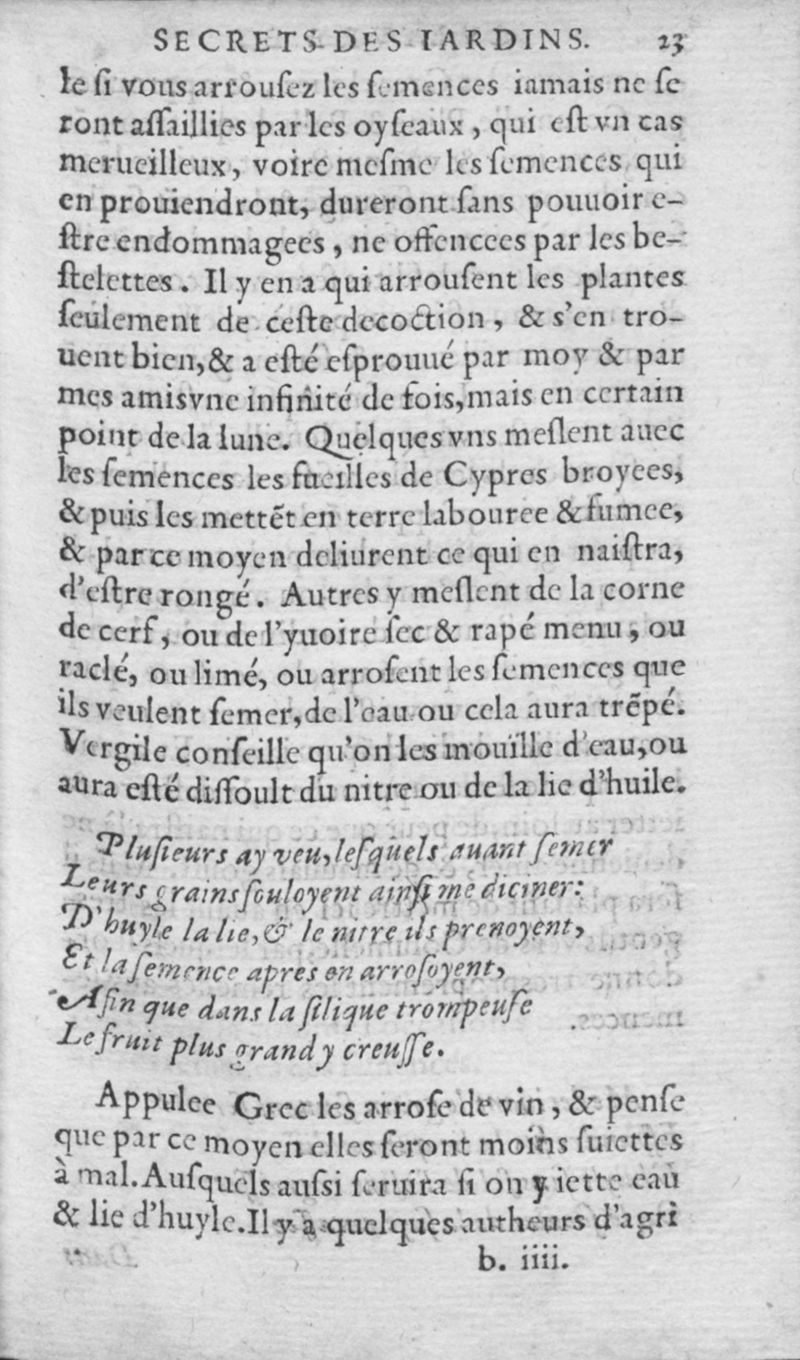 SECRETS DES IARDINS. 23
le si vous arrousez les semences iamais ne se
ront assaillies par les oyseaux, qui est vn cas
merueilleux, voire mesme les semences qui
en prouiendront, dureront sans pouuoir e-
stre endommagees, ne offencees par les be-
stelettes. Il y en a qui arrousent les plantes
seulement de ceste decoction, & s'en tro-
uent bien, & a esté esprouué par moy & par
mes amis vne infinité de fois, mais en certain
point de la lune. Quelques vns meslent auec
les semences les fueilles de Cypres broyees,
& puis les mettẽt en terre labouree & fumee,
& par ce moyen deliurent ce qui en naistra,
d'estre rongé. Autres y meslent de la corne
de cerf, ou de l'yuoire sec & rapé menu, ou
raclé, ou limé, ou arrosent les semences que
ils veulent semer, de l'eau ou cela aura trẽpé.
Vergile conseille qu'on les mouille d'eau, ou
aura esté dissoult du nitre ou de la lie d'huile.
Plusieurs ay veu, lesquels auant semer
Leurs grains souloyent ainsi me diciner:
D'huyle la lie, & le nitre ils prenoyent,
Et la semence apres en arrosoyent,
Afin que dans la silique trompeuse
Le fruit plus grand y creusse.
Appulee Grec les arrose de vin, & pense
que par ce moyen elles seront moins suiettes
à mal. Ausquels aussi seruira si on y iette eau
& lie d'huyle. Il y a quelques autheurs d'agri
b. iiii.